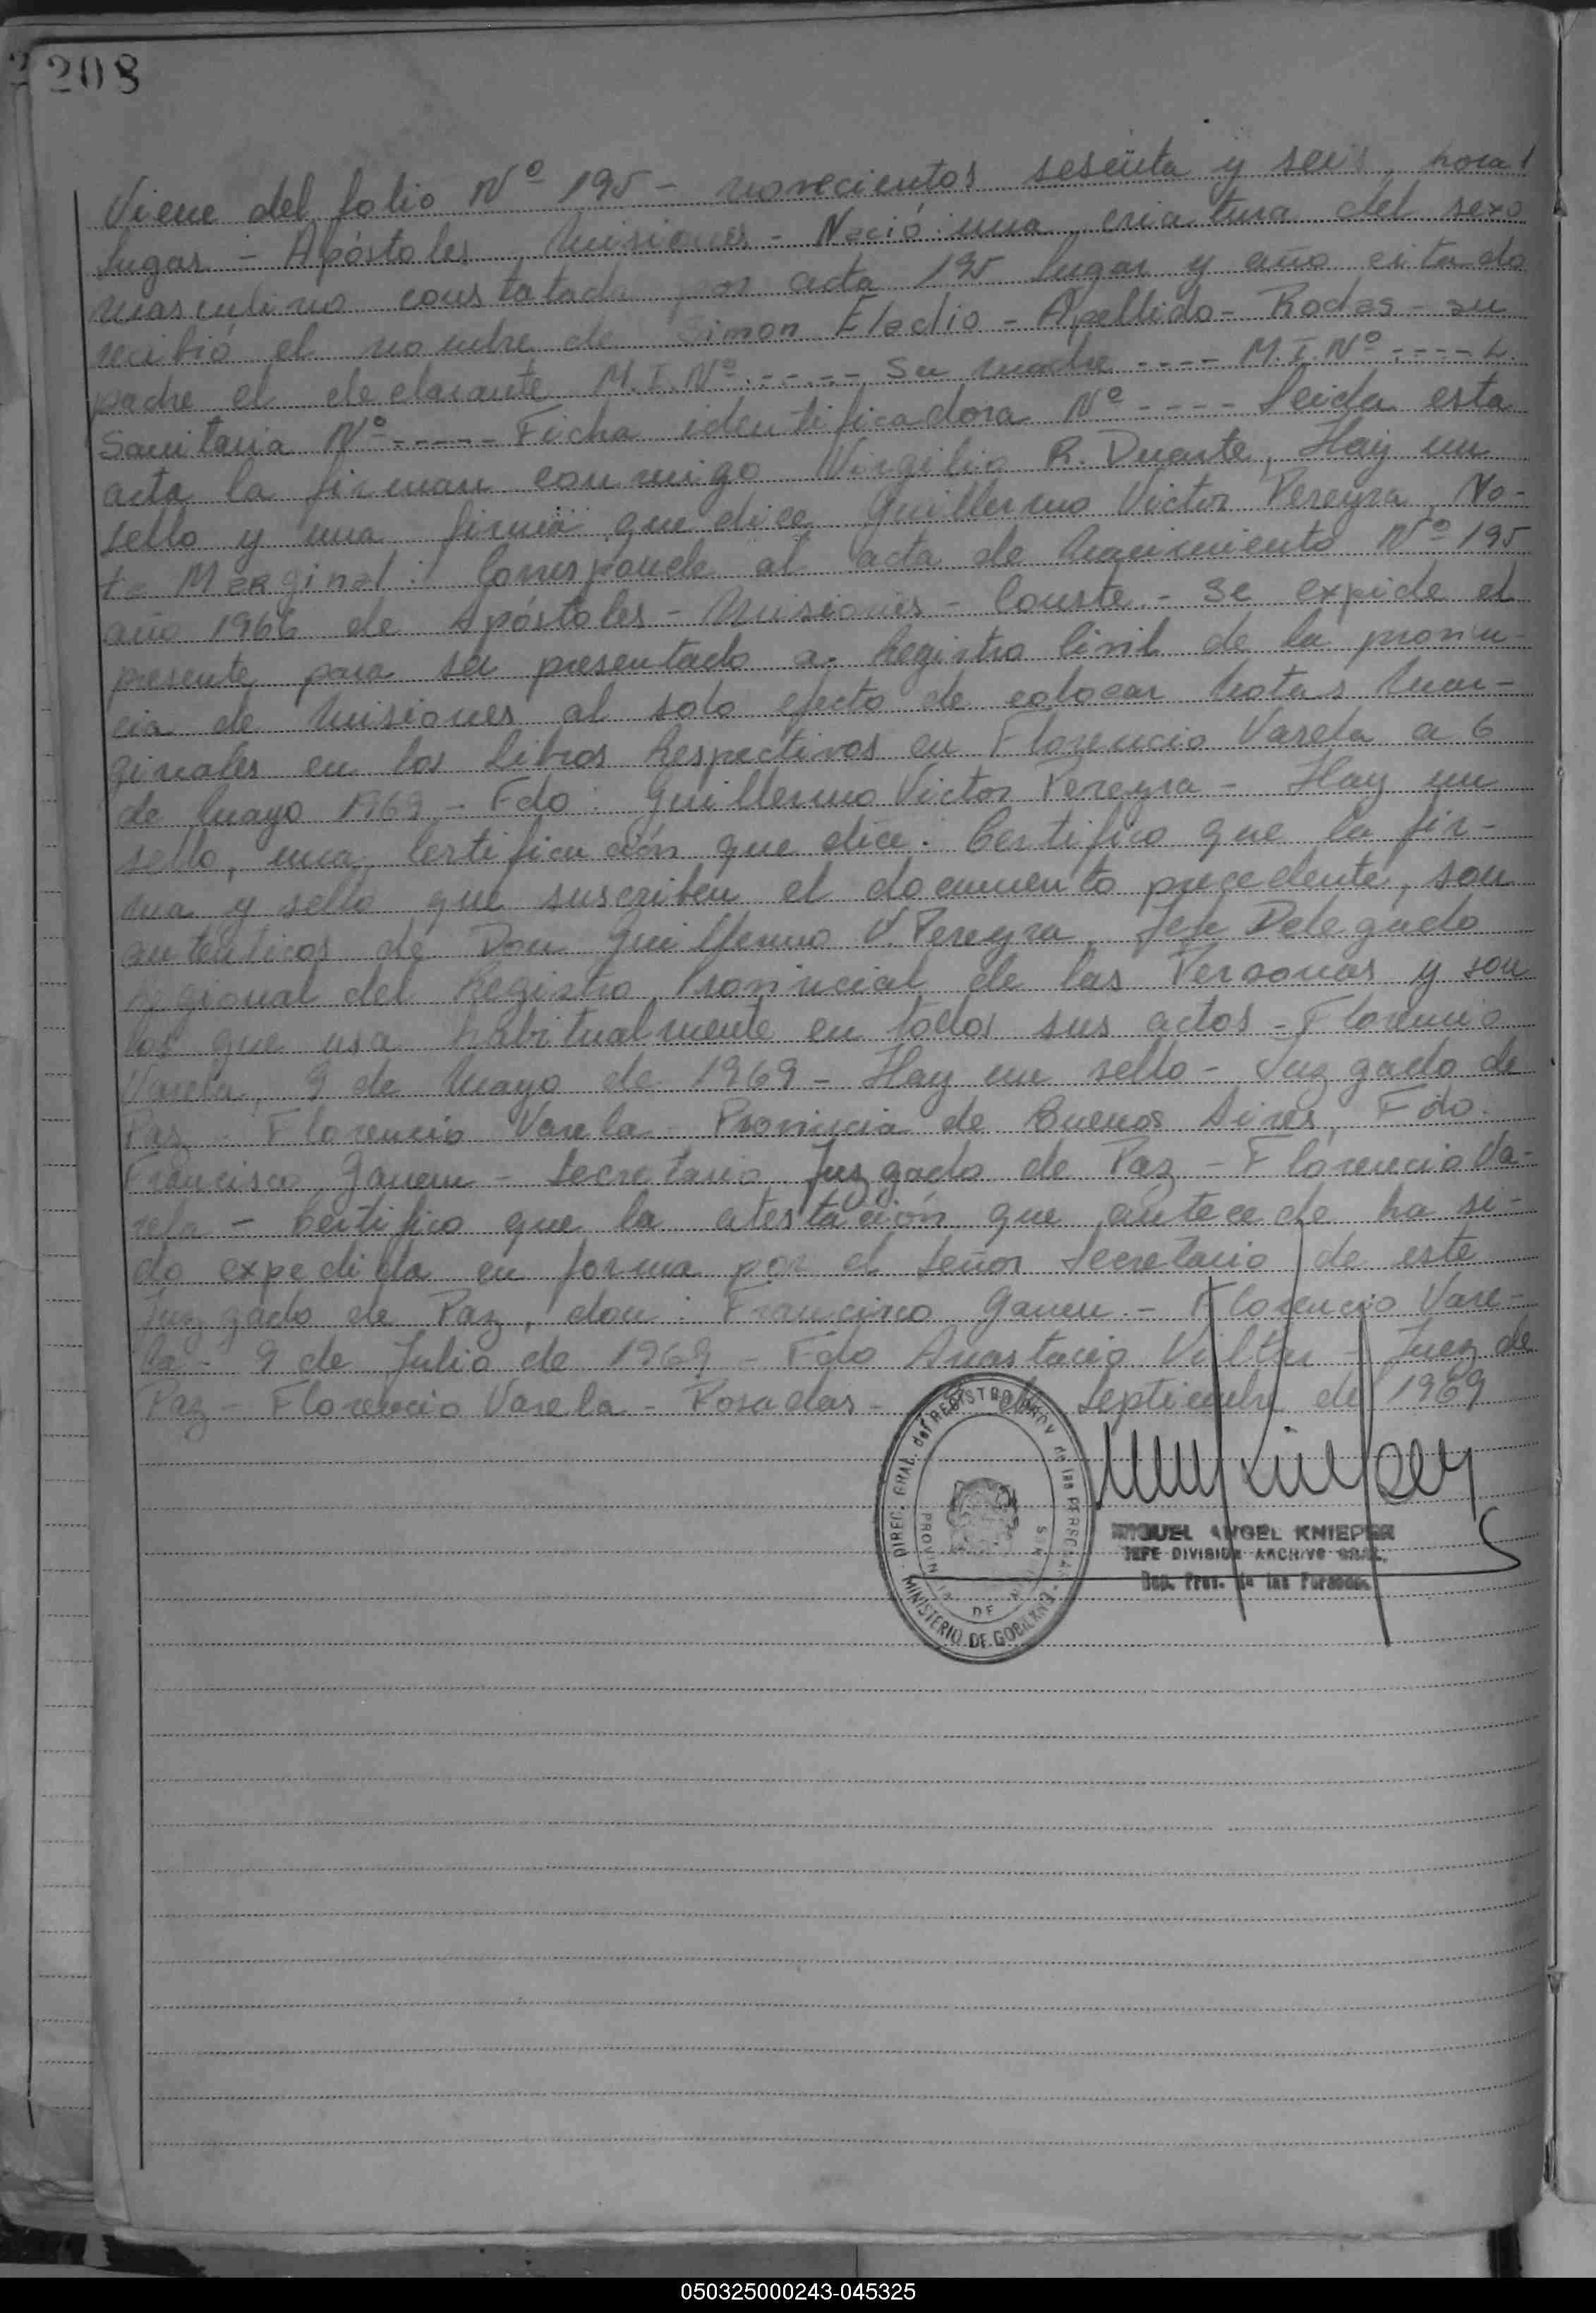 208
Viene del folio Nº 195 - novecientos sesenta y seis, hora
lugar - Apóstoles Misiones - Nació una criatura del sexo
masculino constatada por acta 195 lugar y año citado
recibió el nombre de Simon Eladio - Apellido - Rodas - su
padre el declarante M.I.Nº ----- Su madre ---- M.I.Nº ---- L.
Sanitaria Nº ----- Ficha identificadora Nº ---- Leida esta
acta la firman conmigo Virgilio R. Duarte, Hay un
sello y una firma que dice Guillermo Victor Pereyra, No-
ta Marginal: Corresponde al acta de Nacimiento Nº 195
año 1966 de Apóstoles - Misiones - Conste - Se expide el
presente para ser presentado a Registro Civil de la provin-
cia de Misiones al solo efecto de colocar Notas Mar-
ginales en los Libros Respectivos en Florencio Varela a 6
de Mayo 1969 - Fdo: Guillermo Victor Pereyra - Hay un
sello, una Certificación que dice: Certifico que la fir-
ma y sello que suscriben el documento precedente, son
autenticos de Don Guillermo V. Pereyra, Jefe Delegado
Regional del Registro Provincial de las Personas y son
los que usa habitualmente en todos sus actos - Florencio
Varela, 9 de Mayo de 1969 - Hay un sello - Juzgado de
Paz - Florencio Varela - Provincia de Buenos Aires, Fdo.
Francisco Ganem - Secretario Juzgado de Paz - Florencio Va-
rela - Certifico que la atestación que antecede ha si-
do expedida en forma por el Señor Secretario de este
Juzgado de Paz, don: Francisco Ganem. - Florencio Vare-
la - 9 de Julio de 1969 - Fdo Anastacio Villar - Juez de
Paz - Florencio Varela - Posadas - de Septiembre de 1969
DIREC. GRAL. del REGISTRO PROV. de las PERSONAS
PROVINCIA DE MISIONES
MINISTERIO DE GOBIERNO
MIGUEL ANGEL KNIEPER
JEFE DIVISION ARCHIVO GRAL.
Rep. Prov. de las Personas
050325000243-045325